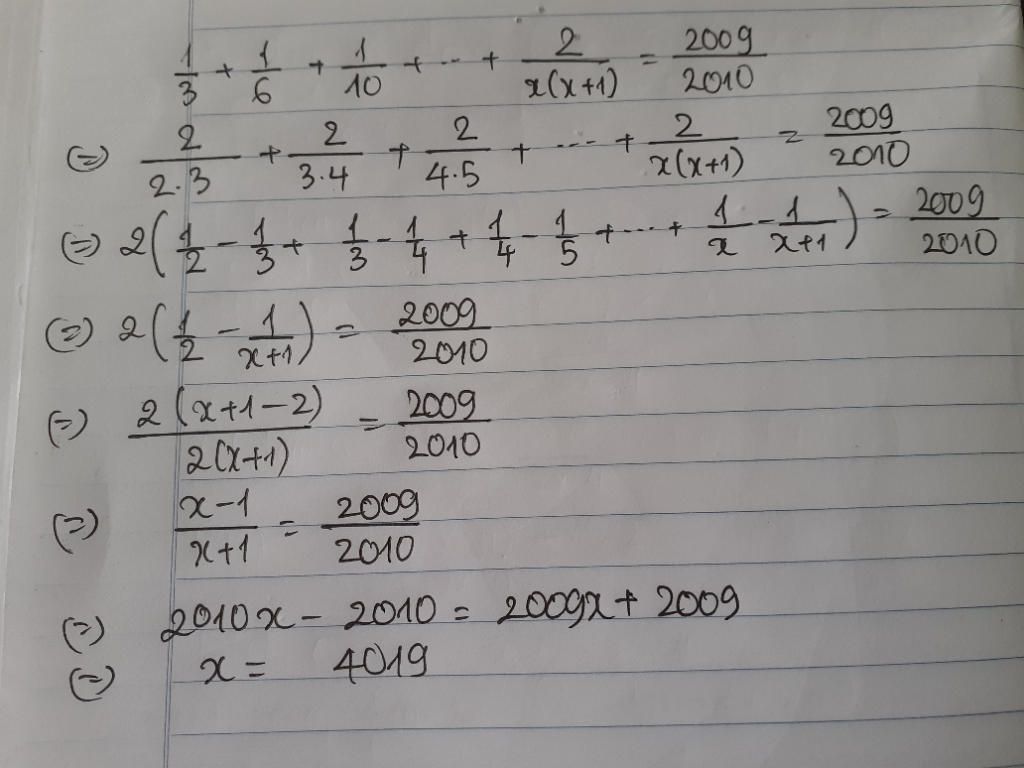 1/3 + 1/6 + 1/10 + ... + 2/x(x+1) = 2009/2010
(=) 2/2.3 + 2/3.4 + 2/4.5 + ... + 2/x(x+1) = 2009/2010
(=) 2(1/2 - 1/3 + 1/3 - 1/4 + 1/4 - 1/5 + ... + 1/x - 1/x+1) = 2009/2010
(=) 2(1/2 - 1/x+1) = 2009/2010
(=) 2(x+1-2)/2(x+1) = 2009/2010
(=) x-1/x+1 = 2009/2010
(=) 2010x - 2010 = 2009x + 2009
(=) x = 4019